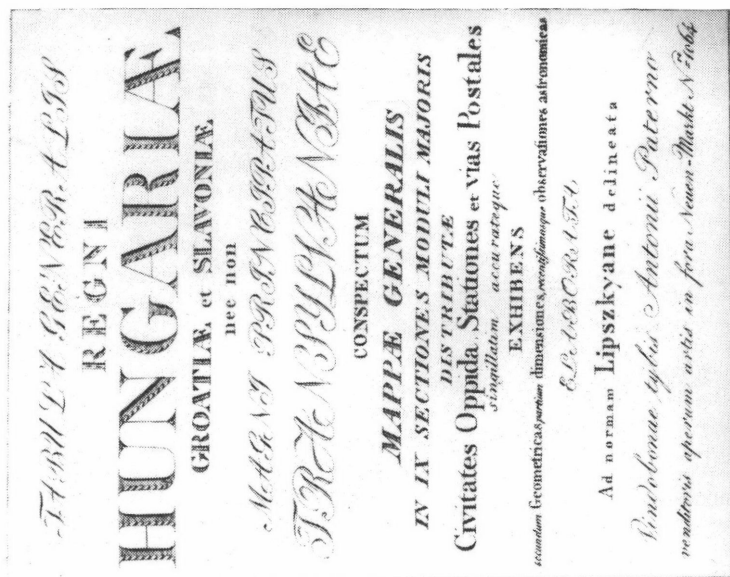 TABULA GENERALIS
REGNI
HUNGARIÆ,
CROATIÆ et SLAVONIÆ,
nec non
MAGNI PRINCIPATUS
TRANSYLVANIAE
CONSPECTUM
MAPPÆ GENERALIS
IN IX SECTIONES MODULI MAJORIS
DISTRIBUTÆ
Civitates Oppida, Stationes et Vias Postales
singillatim accurateque
EXHIBENS
secundum Geometricas partium dimensiones, recentissimasque observationes astronomicas
ELABORATA
Ad normam Lipszkyane delineata
Vindobonae typis Antonii Paterno
venditoris operum artis in foro Neuen-Markt No. 1064